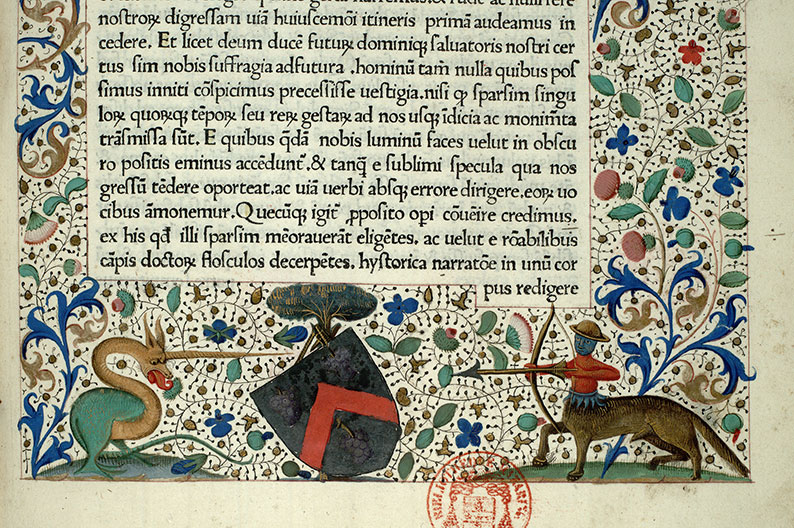 nostroꝝ digressam uiā huiuscemōi itineris primā audeamus in
cedere. Et licet deum ducē futuꝝ dominiqꝫ saluatoris nostri cer
tus sim nobis suffragia adfutura .hominū tam nulla quibus pos
simus inniti cōspicimus precessisse uestigia.nisi ꝙ sparsim singu
loꝝ quorumqꝫ tēpoꝝ seu reꝝ gestaꝝ ad nos usqꝫ īdicia ac monimēta
trāsmissa sūt. E quibus qdā nobis luminū faces uelut in obscu
ro positis eminus accēdunt᷑.& tanqꝫ e sublimi specula qua nos
gressū tēdere oporteat.ac uiā uerbi absqꝫ errore dirigere.eoꝝ uo
cibus āmonemur. Quecūqꝫ igit᷑ ꝓposito opi cōueīre credimus.
ex his qd illi sparsim mēorauerāt eligētes. ac uelut e rōabilibus
cāpis doctoꝝ flosculos decerpētes. hystorica narratōe in unū cor
pus redigere